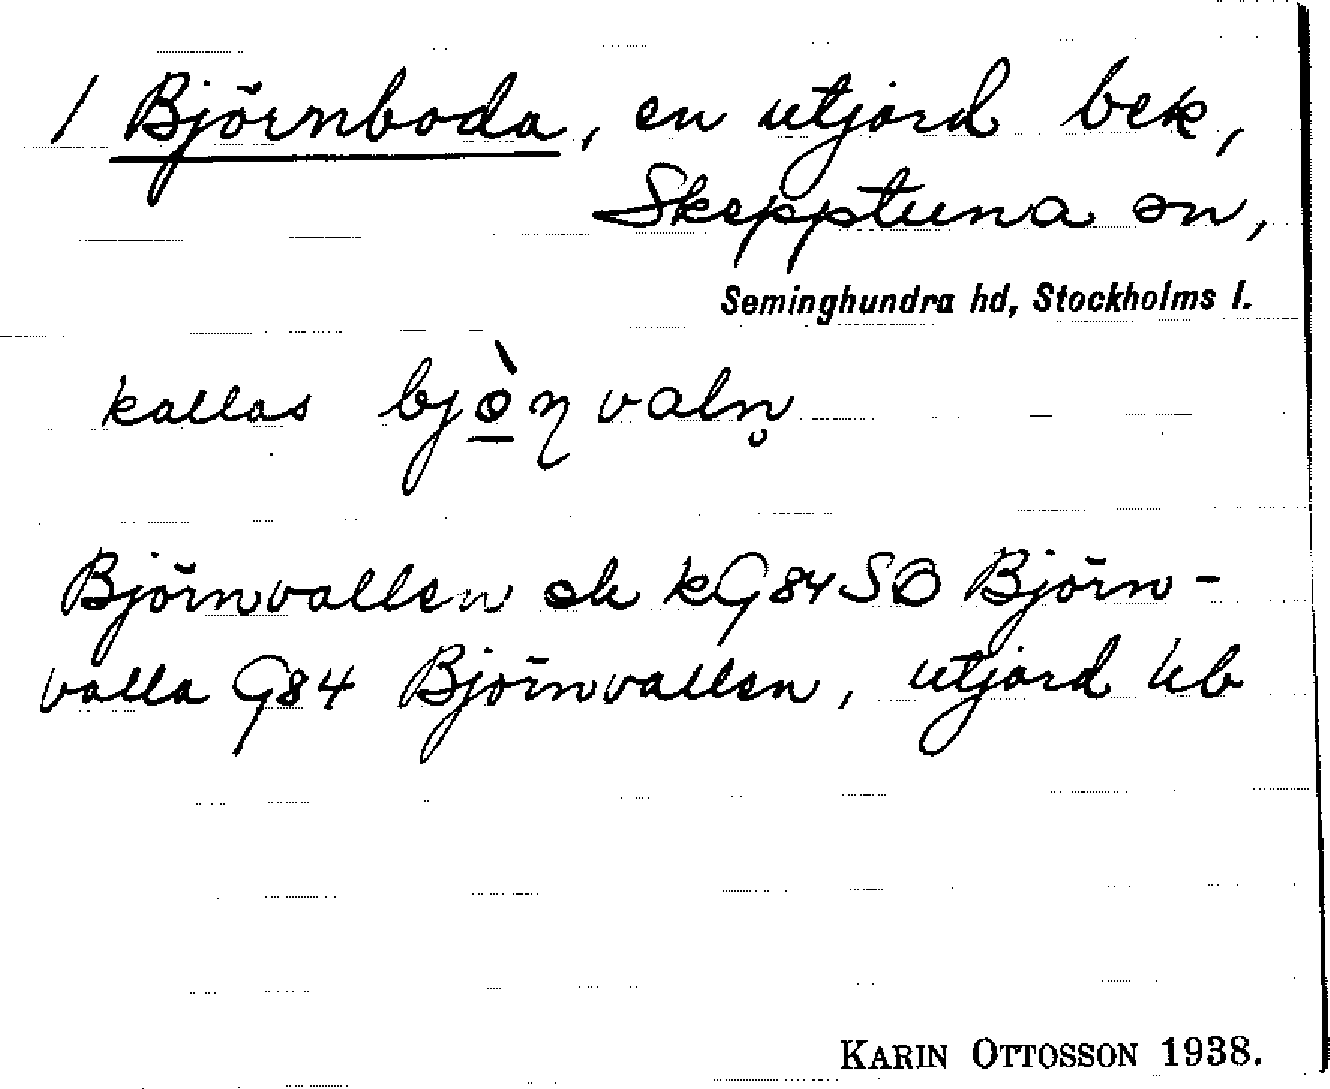 1 Björnboda, en utjord bek,
Skepptuna sn,
Seminghundra hd, Stockholms l.
kallas bjò̲ɳvaln̥
Björnvallen ek kG84SO Björn-
valla G84 Björnvallen, utjord Ub
KARIN OTTOSSON 1938.